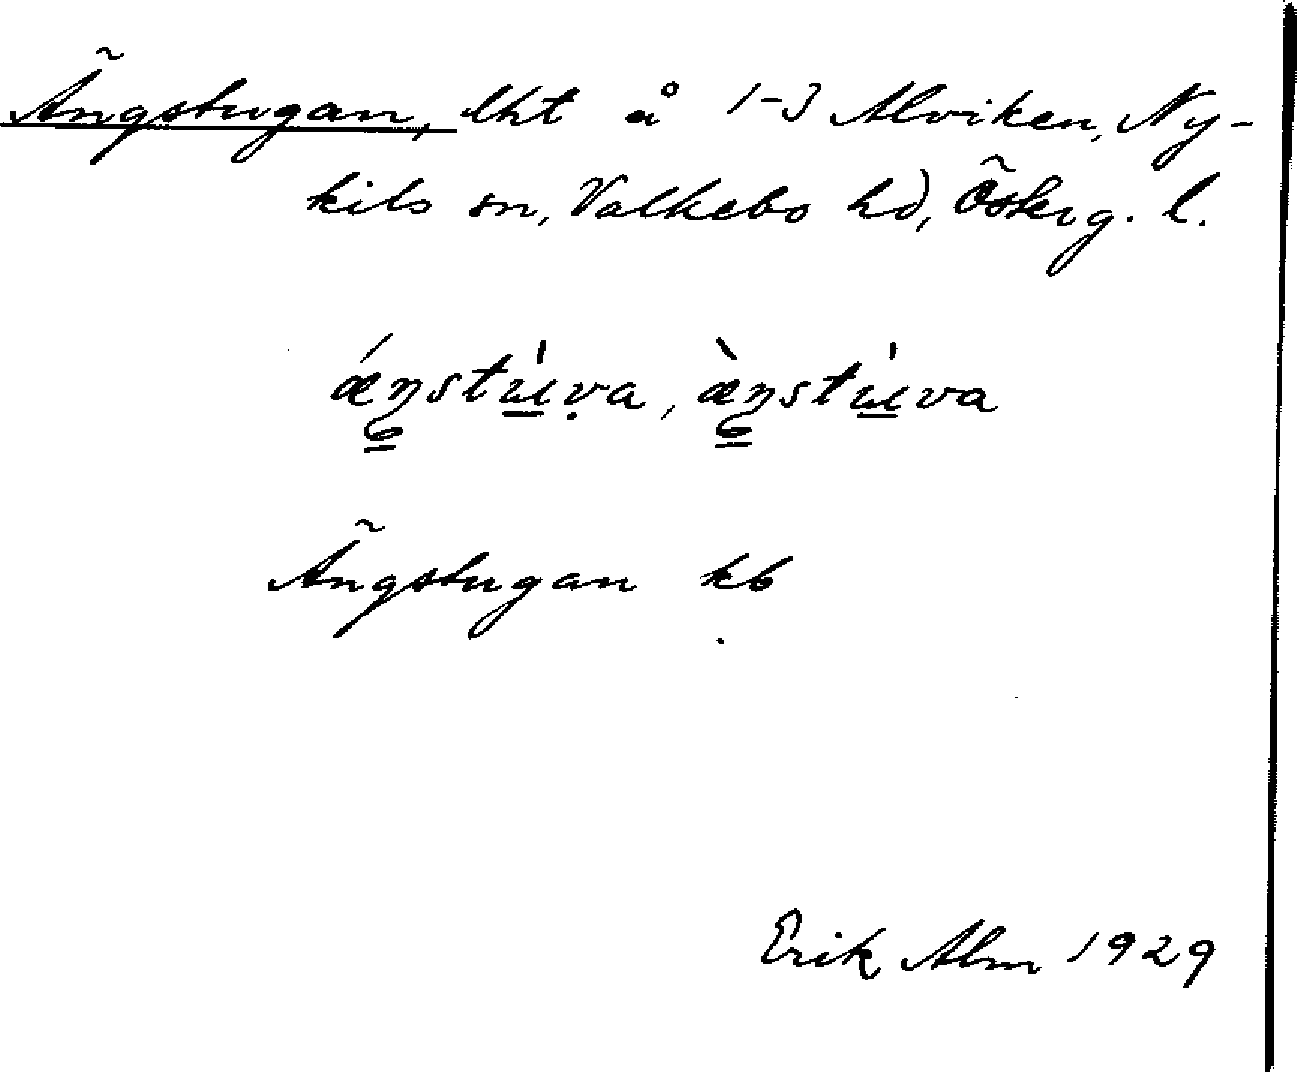 Ängstugan, lht å 1-3 Alviken, Ny-
kils sn, Valkebo hd, Österg. l.
ǽŋstu̲̍ṿa, æ̀ŋstu̲̍va
Ängstugan kb
Erik Alm 1929